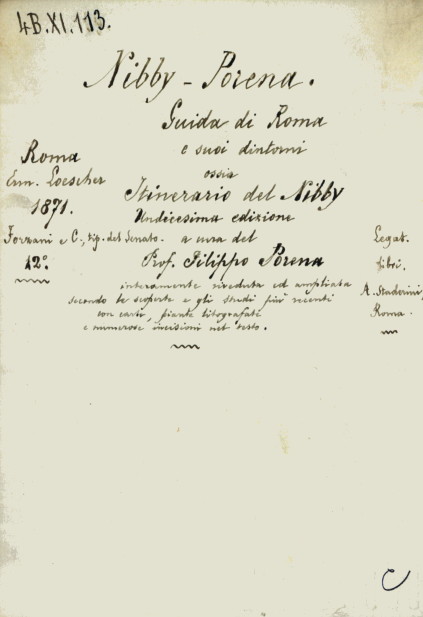 4B.XI.113.
Nibby - Porena.
Guida di Roma
e suoi dintorni
ossia
Itinerario del Nibby
Undecesima edizione
a cura del
Prof. Filippo Porena
interamente riveduta ed ampliata
secondo le scoperte e gli studi più recenti
con carte, piante litografate
e numerose incisioni nel testo.
Roma
Erm. Loescher
1871.
Forzani e C., tip. del Senato.
12º.
Legat.
libri.
A. Staderini,
Roma.
C